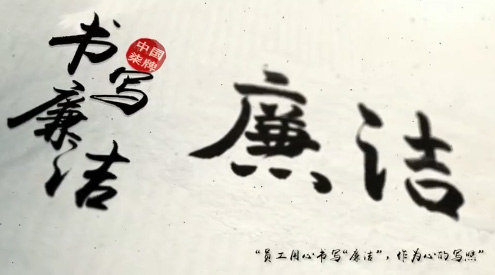 书写
廉洁
中国
柒牌
廉洁
“员工用心书写“廉洁”，作为心的写照”